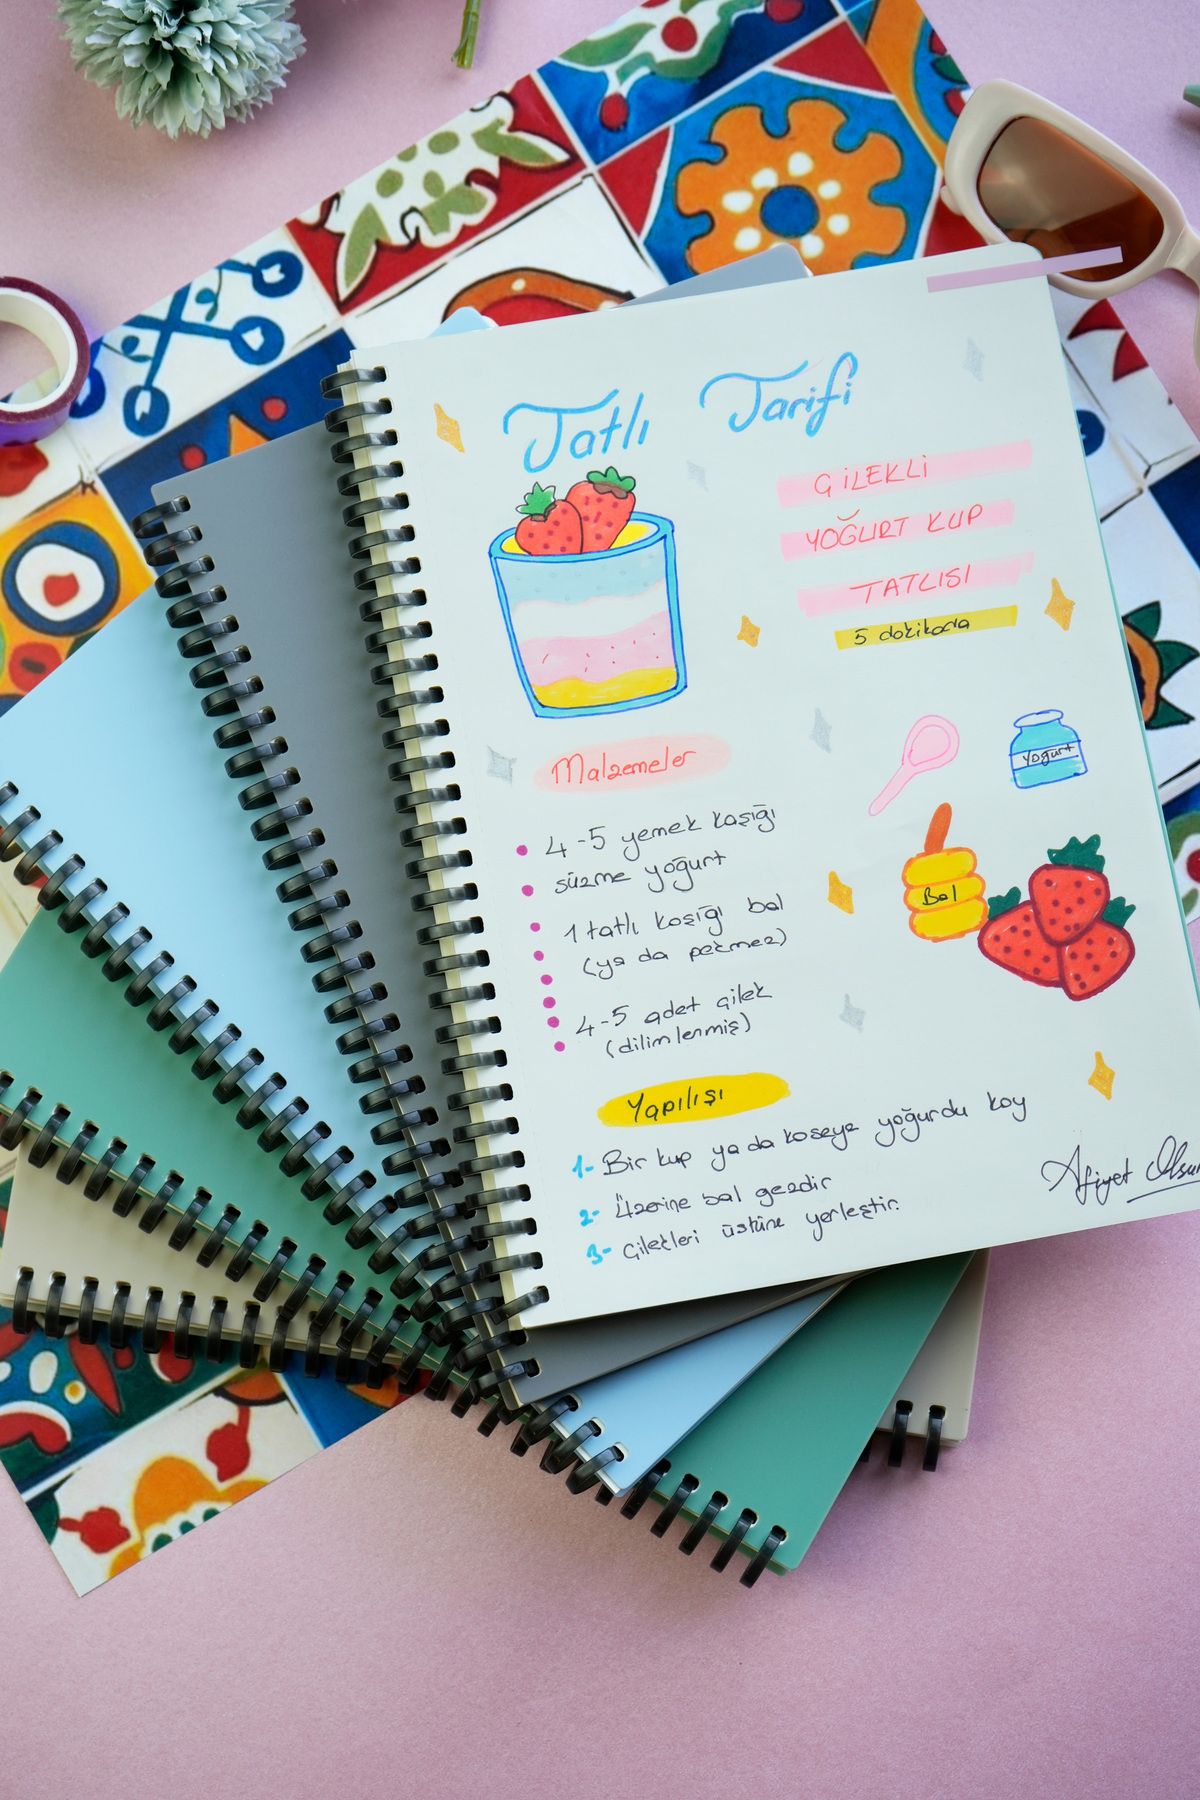 Tatlı Tarifi
ÇİLEKLİ
YOĞURT KUP
TATLISI
5 dakikada
Yogurt
Bal
Malzemeler
4-5 yemek kaşığı
süzme yoğurt
1 tatlı kaşığı bal
(ya da pekmez)
4-5 adet çilek
(dilimlenmiş)
Yapılışı
1- Bir kup ya da kaseye yoğurdu koy
2- Üzerine bal gezdir
3- Çilekleri üstüne yerleştir.
Afiyet Olsun